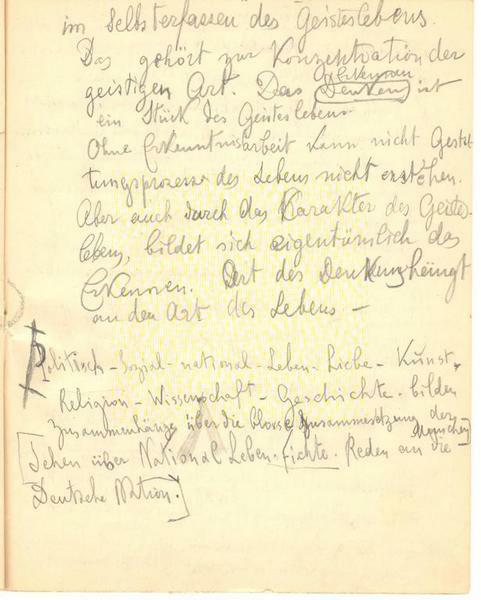 im Selbsterfassen des Geisteslebens.
Das gehört zur Konzentration der
Erkennen
geistigen Art. Das (Denken) ist
ein Stück des Geisteslebens.
Ohne Erkenntnisarbeit kann nicht Gestal-
tungsprozesse des Lebens nicht erstehen.
Aber auch durch das Karakter des Geistes-
lebens, bildet sich eigentümlich das
Erkennen. Art des Denkens hängt
an den Art des Lebens —
Politisch - Sozial - national - Leben - Liebe - Kunst,
Religion - Wissenschaft - Geschichte - bilden
Zusammenhänge über die blosse Zusammensetzung der
Menschen
[Sehen über National Leben. Fichte. Reden an die
Deutsche Nation.]